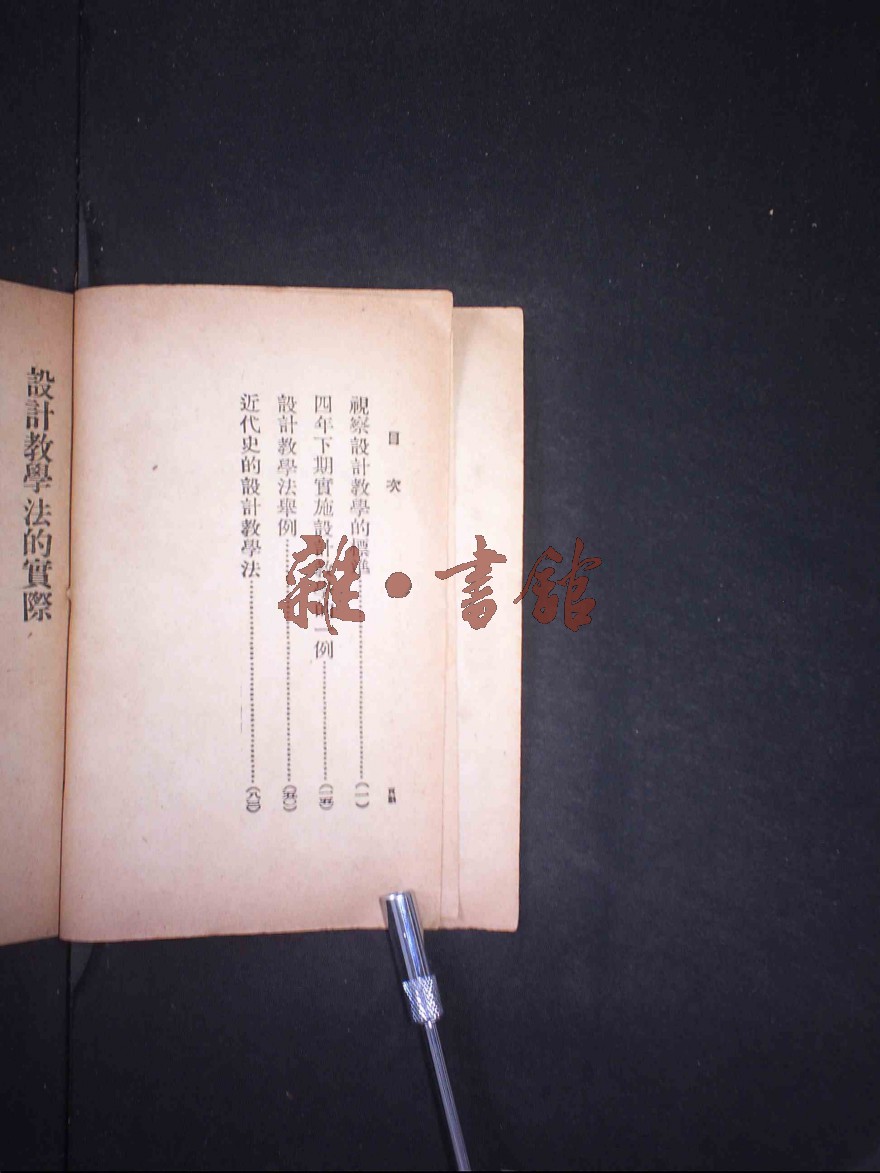 目次
頁數
視察設計教學的標準……(一)
四年下期實施設計教學的一例……(一五)
設計教學法舉例……(五〇)
近代史的設計教學法……(八三)
設計教學法的實際
雜·書館